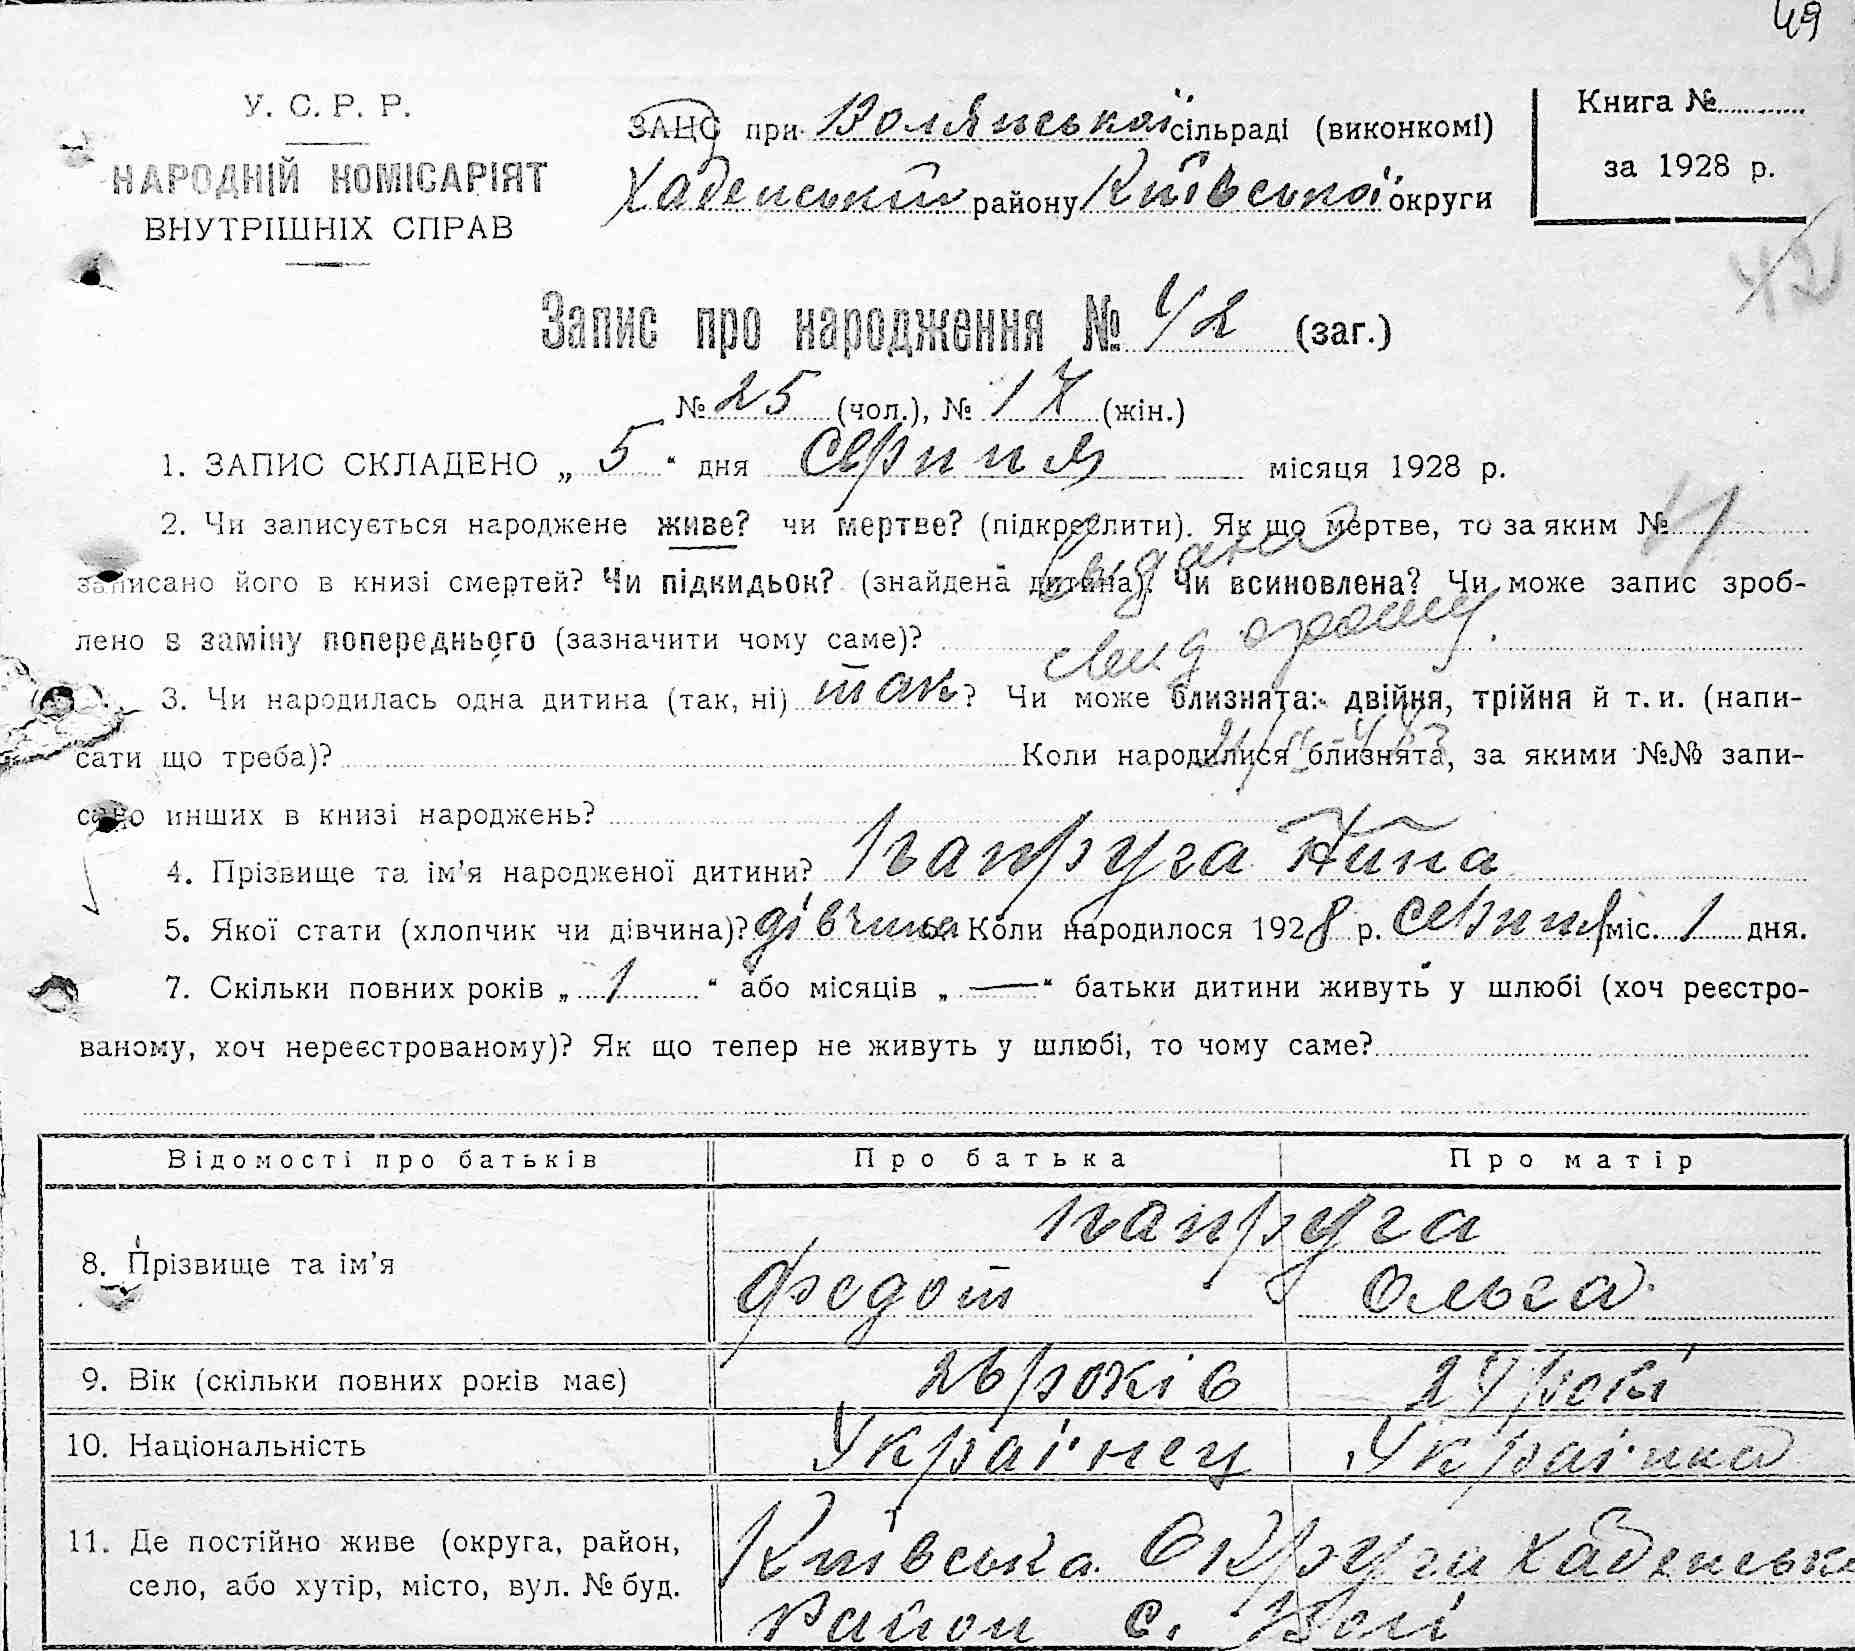 49
У. С. Р. Р.
НАРОДНІЙ КОМІСАРІЯТ
ВНУТРІШНІХ СПРАВ
ЗАЦС при Волянської сільраді (виконкомі)
Хабенський району Київської округи
Книга №
за 1928 р.
42
Запис про народження № 42 (заг.)
№ 25 (чол.), № 17 (жін.)
1. ЗАПИС СКЛАДЕНО „ 5 “ дня серпня місяця 1928 р.
2. Чи записується народжене живе? чи мертве? (підкреслити). Як що мертве, то за яким №
записано його в книзі смертей? Чи підкидьок? (знайдена дитина). Чи всиновлена? Чи може запис зроб-
лено в заміну попереднього (зазначити чому саме)?
3. Чи народилась одна дитина (так, ні) так? Чи може близнята: двійня, трійня й т. и. (напи-
сати що треба)? Коли народилися близнята, за якими №№ запи-
сано инших в книзі народжень?
4. Прізвище та ім’я народженої дитини? Папруга Нина
5. Якої стати (хлопчик чи дівчина)? дівчина Коли народилося 1928 р. серпня міс. 1 дня.
7. Скільки повних років „ 1 “ або місяців „ — “ батьки дитини живуть у шлюбі (хоч реєстро-
ваному, хоч нереєстрованому)? Як що тепер не живуть у шлюбі, то чому саме?
Відомості про батьків Про батька Про матір
8. Прізвище та ім’я Папруга
Федот Ольга
9. Вік (скільки повних років має) 26 років 24 рокі
10. Національність Украінец Украінка
11. Де постійно живе (округа, район,
село, або хутір, місто, вул. № буд.
Київська Округи Хабенськ
Район с. Волі